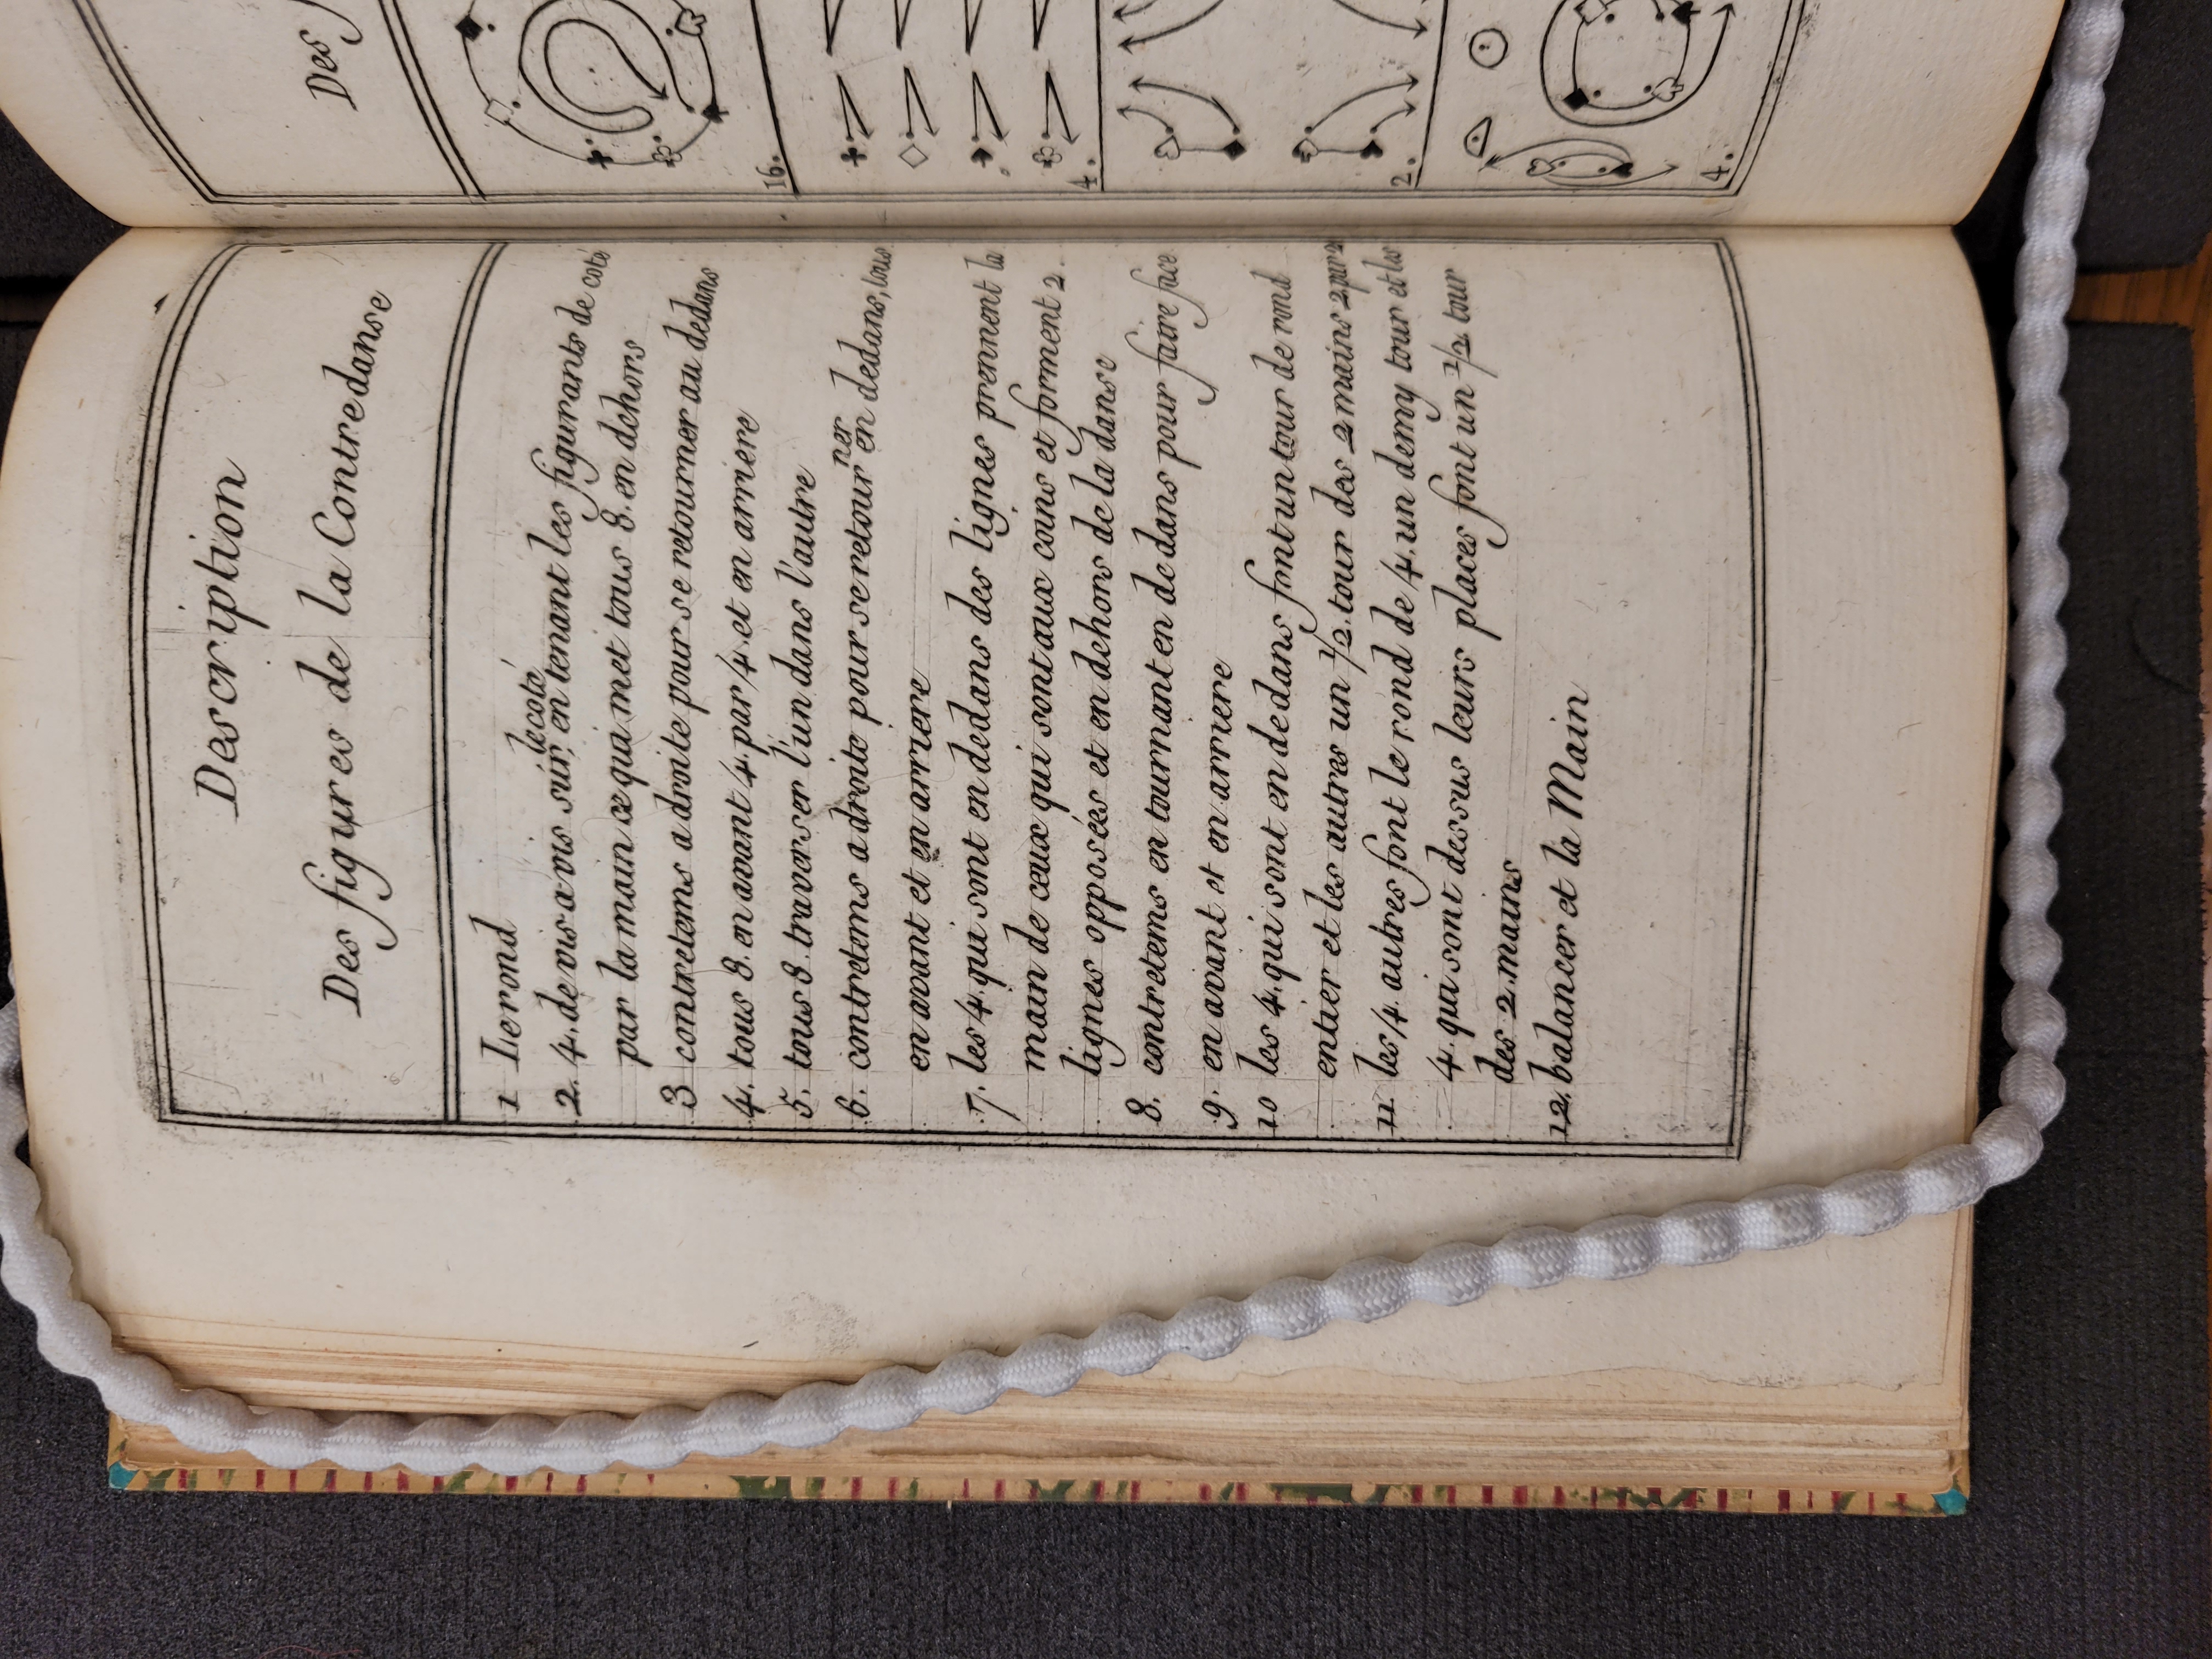 Description
Des figures de la Contredanse
1 Le rond
le coté
2. 4. de vis a vis sur, en tenant les figurants de coté
par la main ce qui met tous 8. en dehors
3 contretems a droite pour se retourner au dedans
4. tous 8. en avant 4 par 4 et en arriere
5. tous 8. traverser l'un dans l'autre
ner
6. contretems a droite pour se retour en dedans, tous
en avant et en arriere
7. les 4 qui sont en dedans des lignes prennent la
main de ceux qui sont aux coins et forment 2.
lignes opposées et en dehors de la danse
8. contretems en tournant en dedans pour faire face
9. en avant et en arriere
10 les 4. qui sont en dedans font un tour de rond
entier et les autres un 1/2. tour des 2 mains 2 par 2
11 les 4. autres font le rond de 4. un demy tour et les
4. qui sont dessus leurs places font un 1/2 tour
des 2. mains
12. balancer et la Main
Des
16.
4.
2.
4.